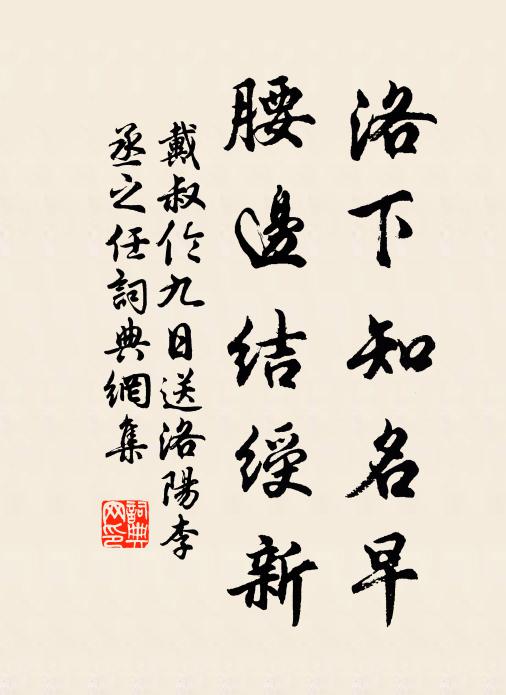 洛下知名早
腰邊結綬新
戴叔伦九日送洛陽李
丞之任詞典網集
詞典
网印